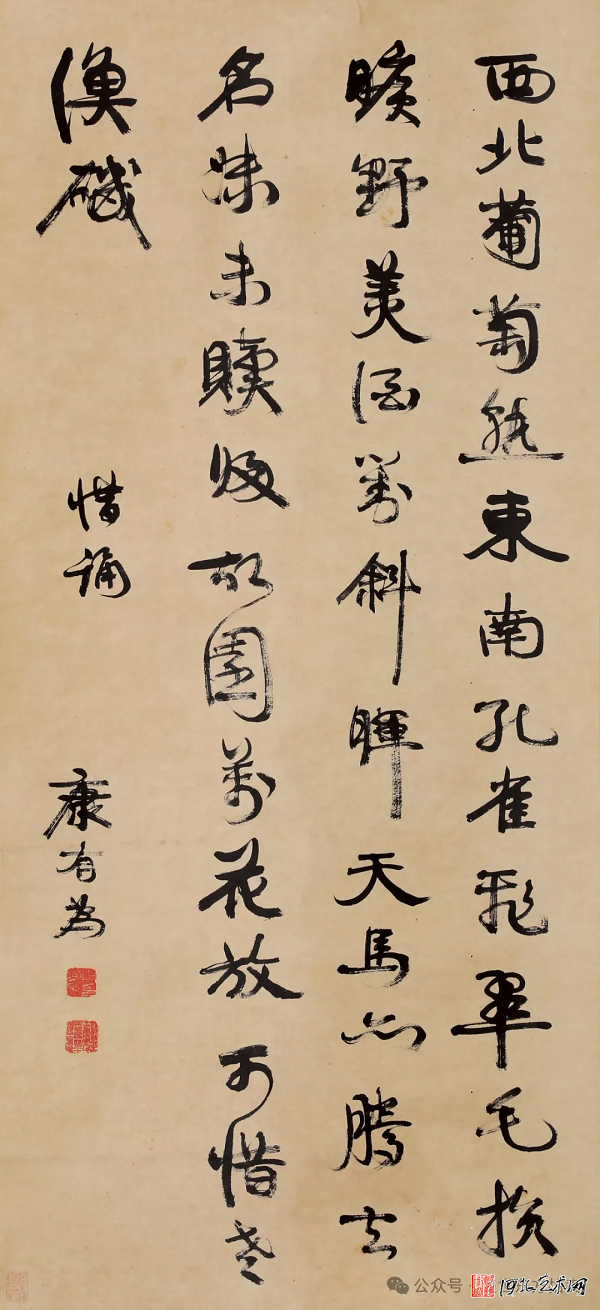 西北葡萄熟東南孔雀飛翠毛損
曠野美酒對斜暉天馬亦騰去
名姝未贖歸故園萬花放可惜老
漁磯
惜誦
康有為
公众号
河北艺术网